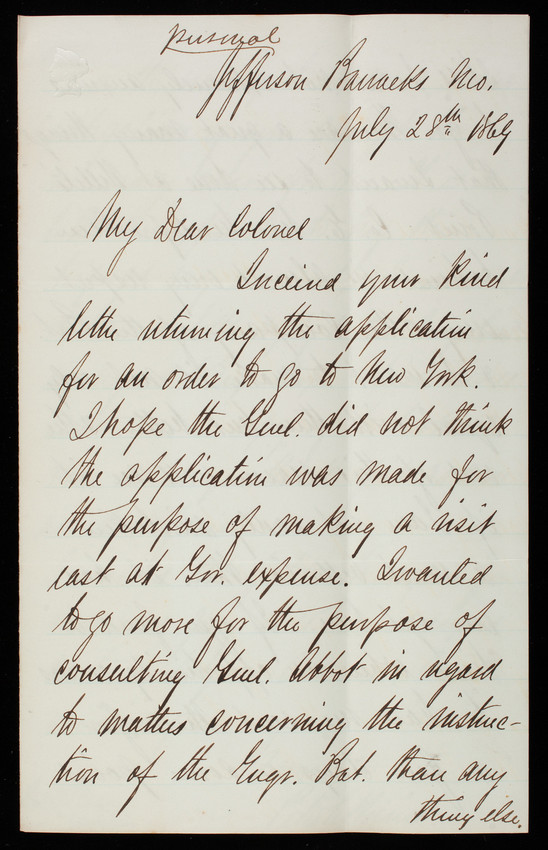 Personal
Jefferson Barracks Mo.
July 28th 1869
My Dear Colonel
I received your kind
letter returning the application
for an order to go to New York.
I hope the Genl. did not think
the application was made for
the purpose of making a visit
east at Gov. expense. I wanted
to go more for the purpose of
consulting Genl. Abbot in regard
to matters concerning the instruc-
tion of the Engr. Bat. than any
thing else.